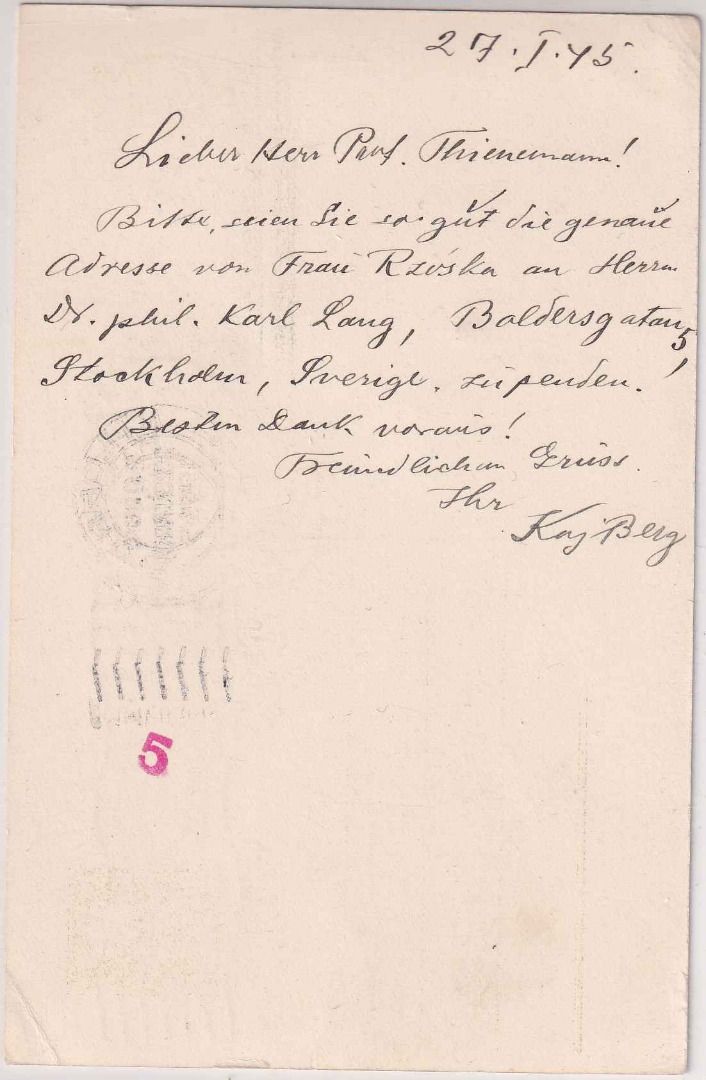 27.I.45.
Lieber Herr Prof. Thienemann!
Bitte, seien Sie so gut die genaue
Adresse von Frau Rzóska an Herrn
Dr. phil. Karl Lang, Baldersgatan 5,
Stockholm, Sverige, zu senden.
Besten Dank voraus!
Freundlichen Gruss.
Ihr
Kaj Berg
5